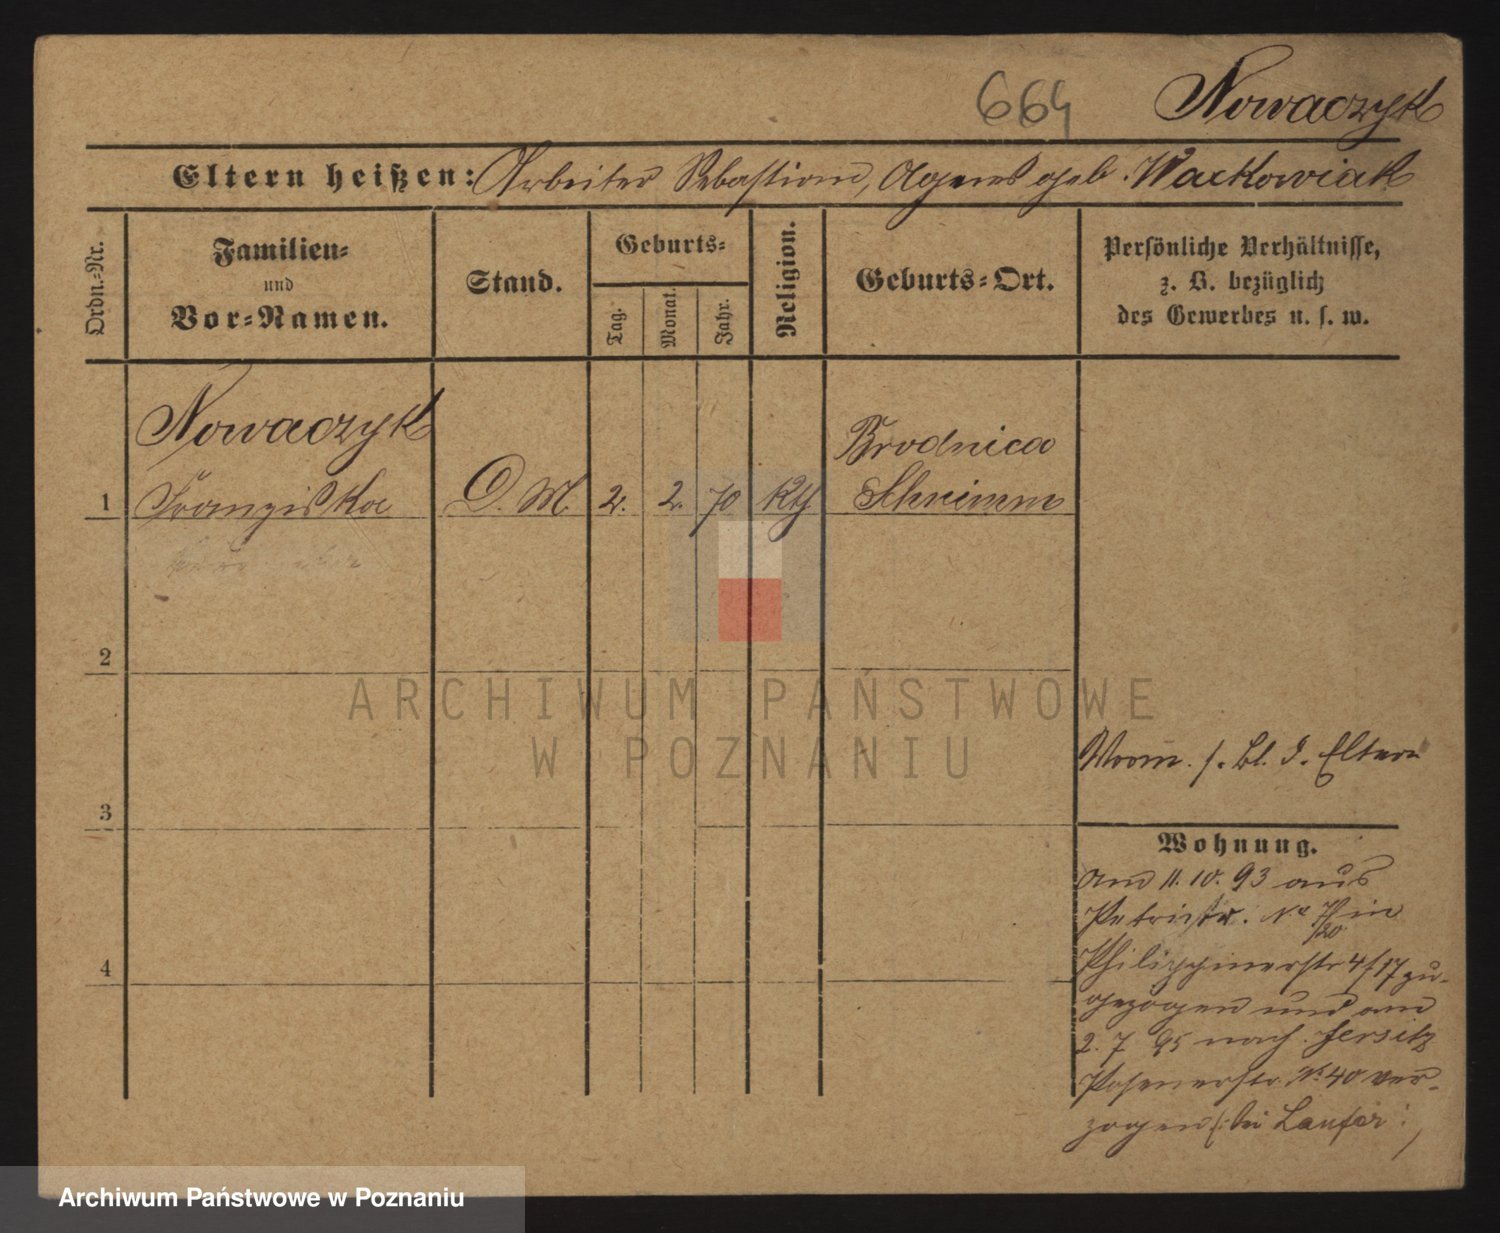 664
Nowaczyk
Eltern heißen: Arbeiter Sebastian, Agnes geb. Wackowiak
Ordn.-Nr.
Familien-
und
Vor-Namen.
Stand.
Geburts-
Tag.
Monat.
Jahr.
Religion.
Geburts-Ort.
Persönliche Verhältnisse,
z. B. bezüglich
des Gewerbes u. s. w.
Nowaczyk
Brodnica
1 Franziska D. M. 2. 2. 70 Kth Schrimm
2
ARCHIWUM PAŃSTWOWE
W POZNANIU
s. Bl. d. Eltern
3
Wohnung.
am 11. 10. 93 aus
Petristr. No 7/20 in
4
Philippinerstr 4/17 zu-
gezogen und am
2. 7 95 nach Jersitz
Posenerstr. No 40 ver-
zogen (: bei Laufer :)
Archiwum Państwowe w Poznaniu